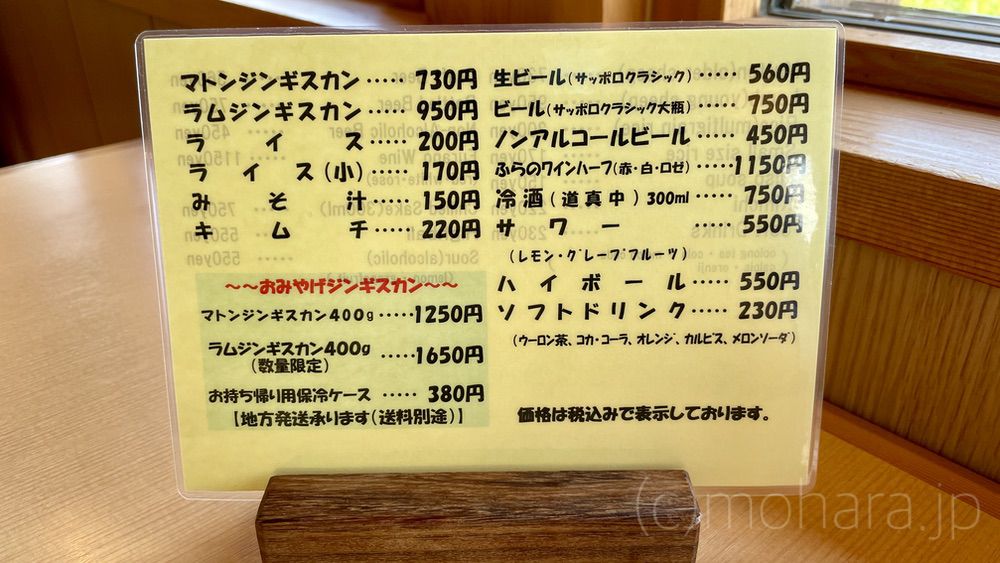 マトンジンギスカン‥‥‥730円
ラムジンギスカン‥‥‥950円
ライス‥‥‥200円
ライス(小)‥‥‥170円
みそ汁‥‥‥150円
キムチ‥‥‥220円
～～おみやげジンギスカン～～
マトンジンギスカン400g‥‥‥1250円
ラムジンギスカン400g‥‥‥1650円
(数量限定)
お持ち帰り用保冷ケース‥‥‥380円
【地方発送承ります(送料別途)】
生ビール(サッポロクラシック)‥‥‥560円
ビール(サッポロクラシック大瓶)‥‥‥750円
ノンアルコールビール‥‥‥450円
ふらのワインハーフ(赤・白・ロゼ)‥‥‥1150円
冷酒(道真中)300ml‥‥‥750円
サワー‥‥‥550円
(レモン・グレープフルーツ)
ハイボール‥‥‥550円
ソフトドリンク‥‥‥230円
(ウーロン茶、コカ・コーラ、オレンジ、カルピス、メロンソーダ)
価格は税込みで表示しております。
(c)mohara.jp